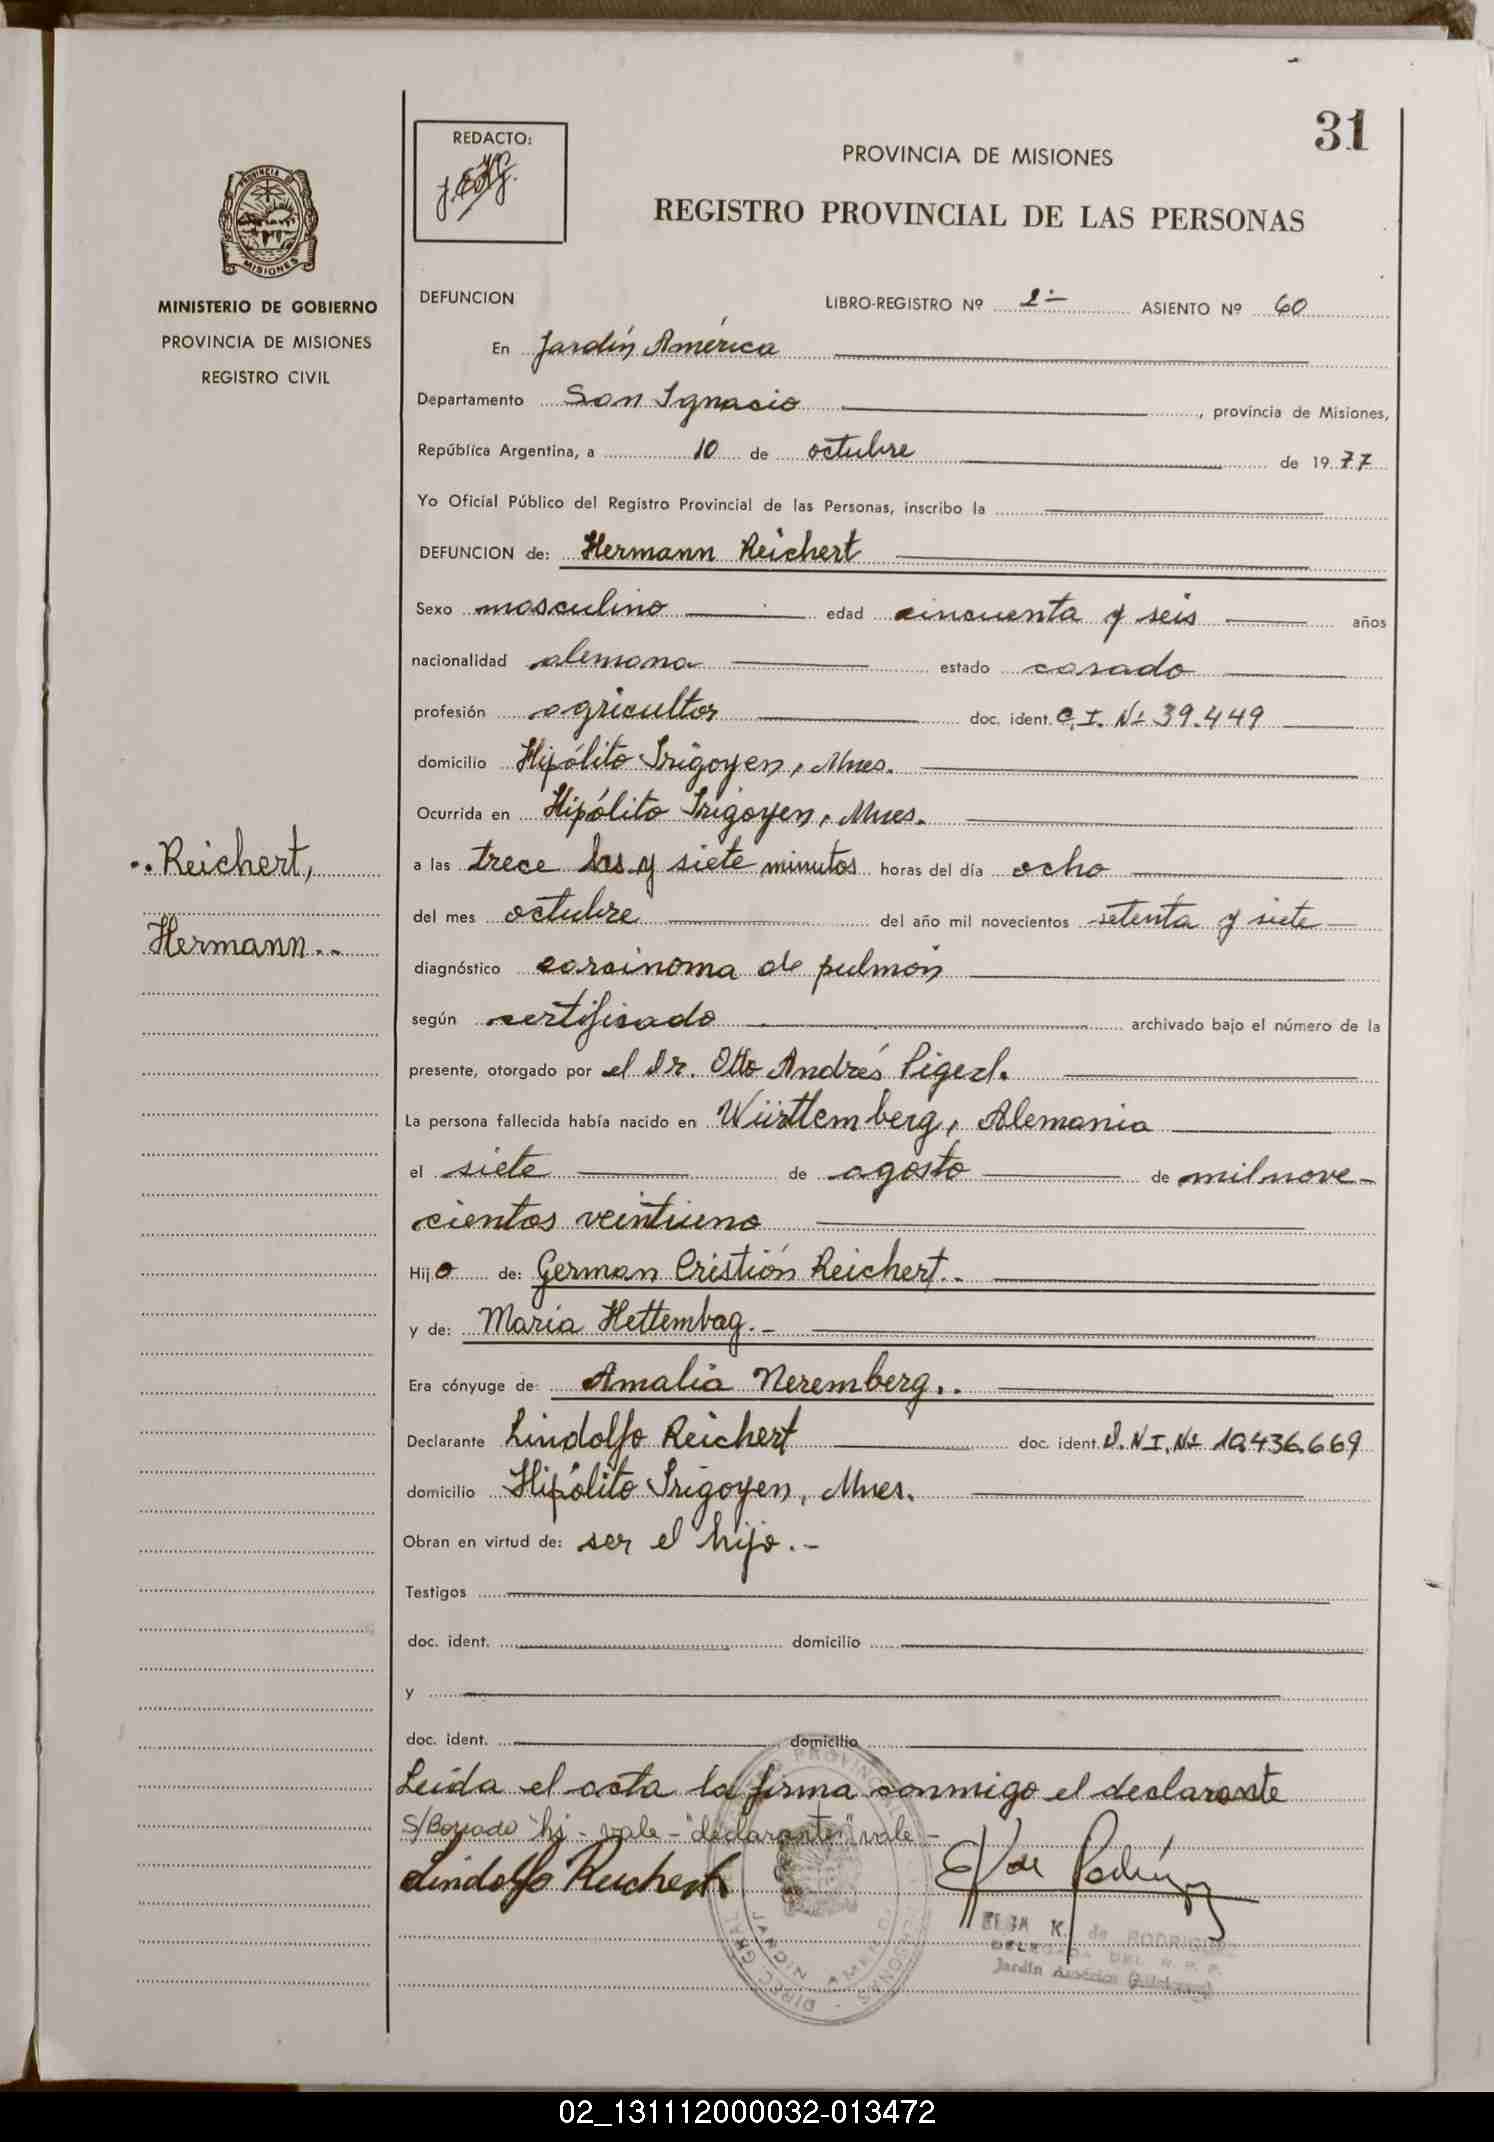 31
REDACTO:
PROVINCIA DE MISIONES
REGISTRO PROVINCIAL DE LAS PERSONAS
PROVINCIA
MISIONES
MINISTERIO DE GOBIERNO
PROVINCIA DE MISIONES
REGISTRO CIVIL
DEFUNCION LIBRO-REGISTRO Nº ASIENTO Nº 60
En Jardín América
Departamento San Ignacio, provincia de Misiones,
República Argentina, a 10 de octubre de 1977
Yo Oficial Público del Registro Provincial de las Personas, inscribo la
DEFUNCION de: Hermann Reichert
Sexo masculino edad cincuenta y seis años
nacionalidad alemana estado casado
profesión agricultor doc. ident. C.I. Nº 39.449
domicilio Hipólito Irigoyen, Mnes.
Ocurrida en Hipólito Irigoyen, Mnes.
a las trece hs. y siete minutos horas del día ocho
del mes octubre del año mil novecientos setenta y siete
diagnóstico carcinoma de pulmón
según certificado archivado bajo el número de la
presente, otorgado por el Dr. Otto Andrés
La persona fallecida había nacido en Württemberg, Alemania
el siete de agosto de mil nove-
cientos veintiuno
Hijo de: German Cristián Reichert.-
y de: María Hettembag.-
Era cónyuge de: Amalia Neremberg..
Declarante Lindolfo Reichert doc. ident. D.N.I. Nº 10.436.669
domicilio Hipólito Irigoyen, Mnes.
Obran en virtud de: ser el hijo.-
Testigos
doc. ident. domicilio
y
doc. ident. domicilio
Leída el acta la firma conmigo el declarante
S/Borrado "hj - vale - "declarante" vale -
Lindolfo Reichert
..Reichert,
Hermann.-
K. de RODRIGUEZ
DELEGADA DEL R. P. P.
Jardín América (Misiones)
02_131112000032-013472